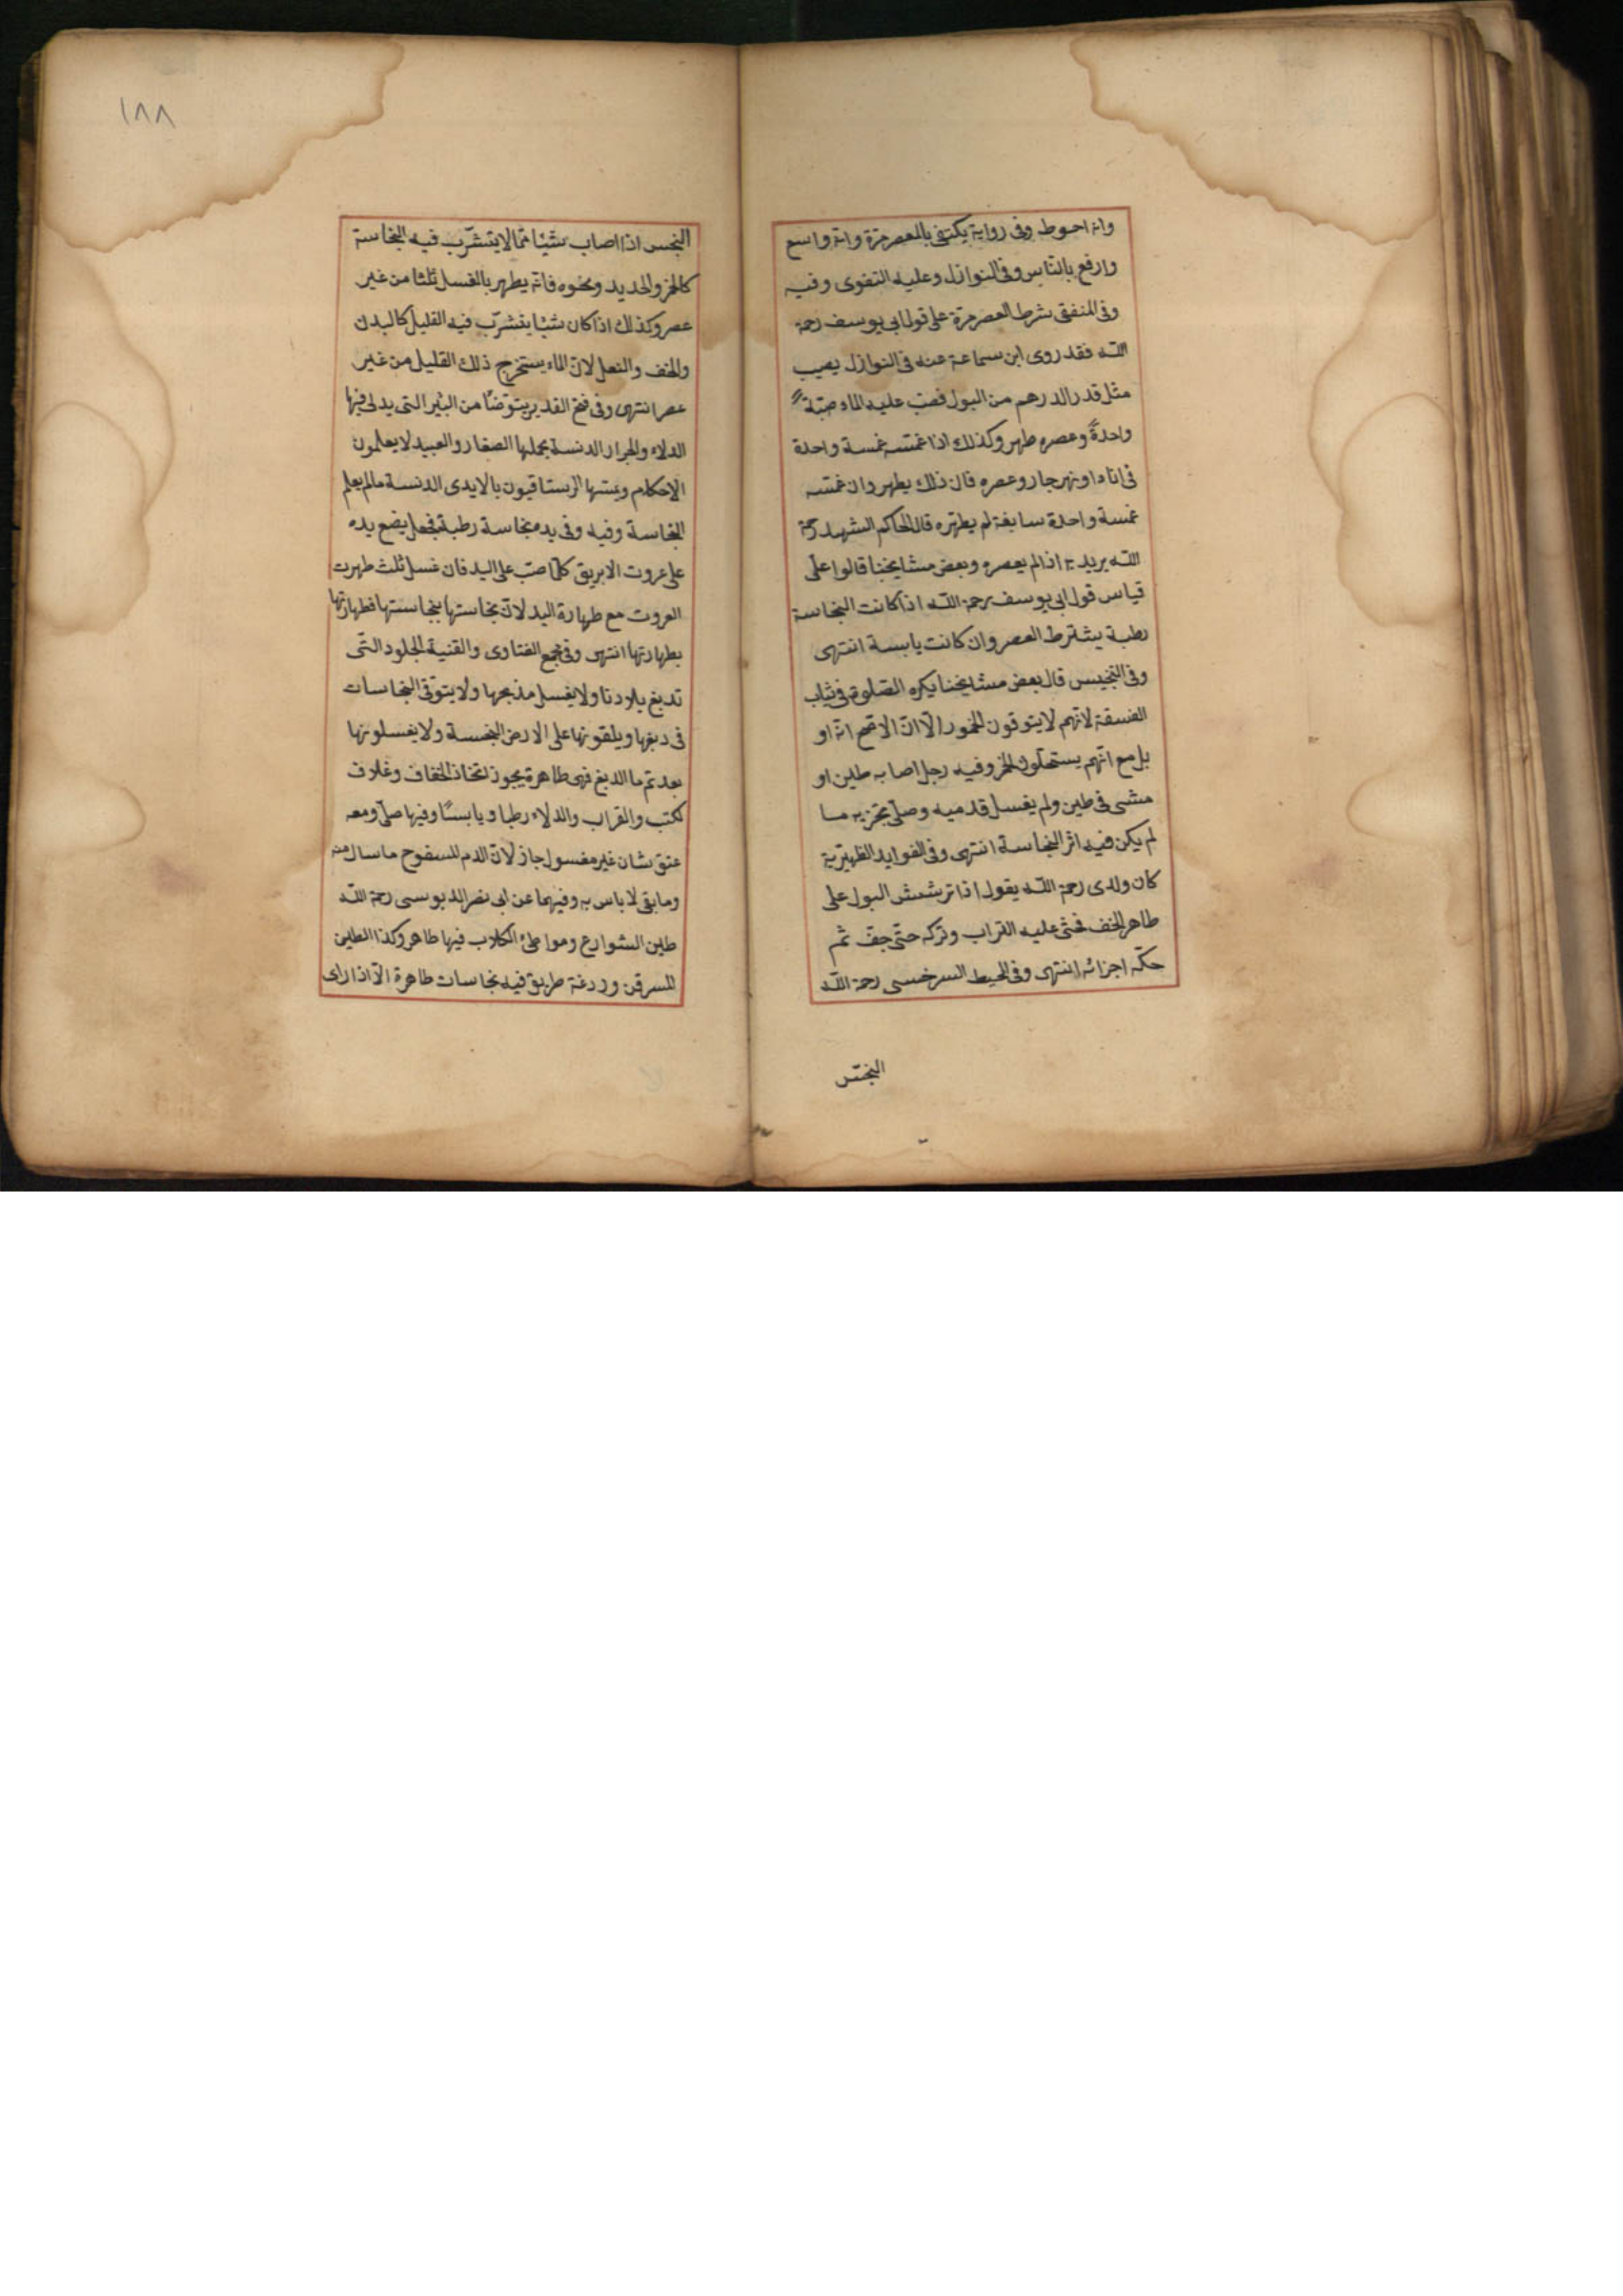 وانه احوط وفى رواية يكتفى بالعصر مرة وانه واسع
وارفع بالناس وفى النوازل وعليه الفتوى وفيه
وفى المنفقى شرط العصر مرة على قول ابى يوسف رحمة
الله فقد روى ابن سماعة عنه فى النوازل يصيب
مثل قدر الدرهم من البول فصب عليه الماء صبة
واحدة وعصره طهر وكذلك اذا غمسه غمسة واحدة
فى اناء او نهر جار وعصره فان ذلك يطهر وان غمسه
غمسة واحدة سابغة لم يطهره قال الحاكم الشهيد رحمة
الله يريد به اذا لم يعصره وبعض مشايخنا قالوا على
قياس قول ابى يوسف رحمة الله اذا كانت النجاسة
رطبة يشترط العصر وان كانت يابسة انتهى
وفى التجنيس قال بعض مشايخنا يكره الصلوة فى ثياب
الفسقة لانهم لا يتوقون الخمور الا ان الاصح انه او
بل مع انهم يستحلون الخمر وفيه رجل اصابه طين او
مشى فى طين ولم يغسل قدميه وصلى تجزيه ما
لم يكن فيه اثر النجاسة انتهى وفى الفوايد الظهيرية
كان والدى رحمة الله يقول اذا ترشش البول على
ظاهر الخف فحثى عليه التراب وتركه حتى جف ثم
حكه اجزائه انتهى وفى المحيط السرخسى رحمة الله
النجس
١٨٨
النجس اذا اصاب شيئا مما لا يتشرب فيه النجاسة
كالخز والحديد ونحوه فانه يطهر بالغسل ثلثا من غير
عصر وكذلك اذا كان شيئا يتشرب فيه القليل كالبدن
والخف والنعل لان الماء يستخرج ذلك القليل من غير
عصر انتهى وفى فتح القدير يتوضأ من البئر التى يدلى فيها
الدلاء والجرار الدنسة يحملها الصغار والعبيد لا يعلمون
الاحكام ويمسها الرستاقيون بالايدى الدنسة ما لم يعلم
النجاسة وفيه وفى يده نجاسة رطبة فجعل يضع يده
على عروت الابريق كلما صب على اليد فان غسل ثلث طهرت
العروت مع طهارة اليد لان نجاستها بنجاستها فطهارتها
بطهارتها انتهى وفى مجمع الفتاوى والقنية الجلود التى
تدبغ ببلادنا ولا يغسل مذبحها ولا يتوقى النجاسات
فى دبغها ويلقونها على الارض النجسة ولا يغسلونها
بعد تم ما الدبغ فهى طاهرة يجوز اتخاذ الخفاف وغلاف
ككتب والقراب والدلاء رطبا ويابسا وفيها صلى ومعه
عنق شان غير مغسول جاز لان الدم المسفوح ما سال منه
وما بقى لا باس به وفيهما عن ابى نصر الدبوسى رحمة الله
طين الشوارع ومواطئ الكلاب فيها طاهر وكذا الطين
المسرقن وردغة طريق فيه نجاسات طاهرة الا اذا راى